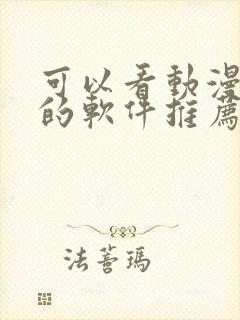 可以看動漫
的軟件推薦
法蒼瑪